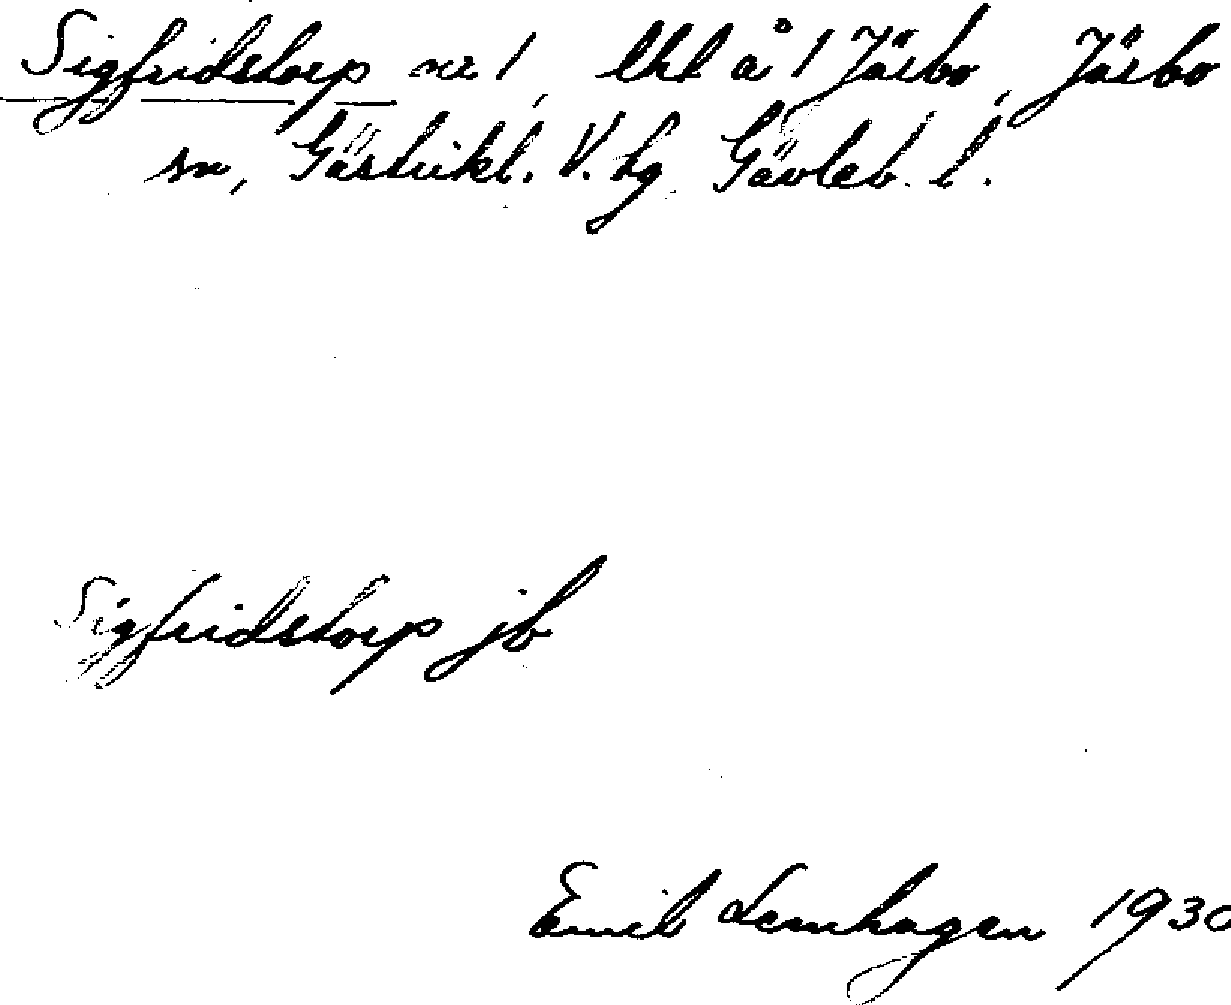 Sigfridstorp nr 1, lht å 1 Järbo, Järbo
sn, Gästrikl. V. tg Gävleb. l.
Sigfridstorp jb
Emil Lemhagen 1930